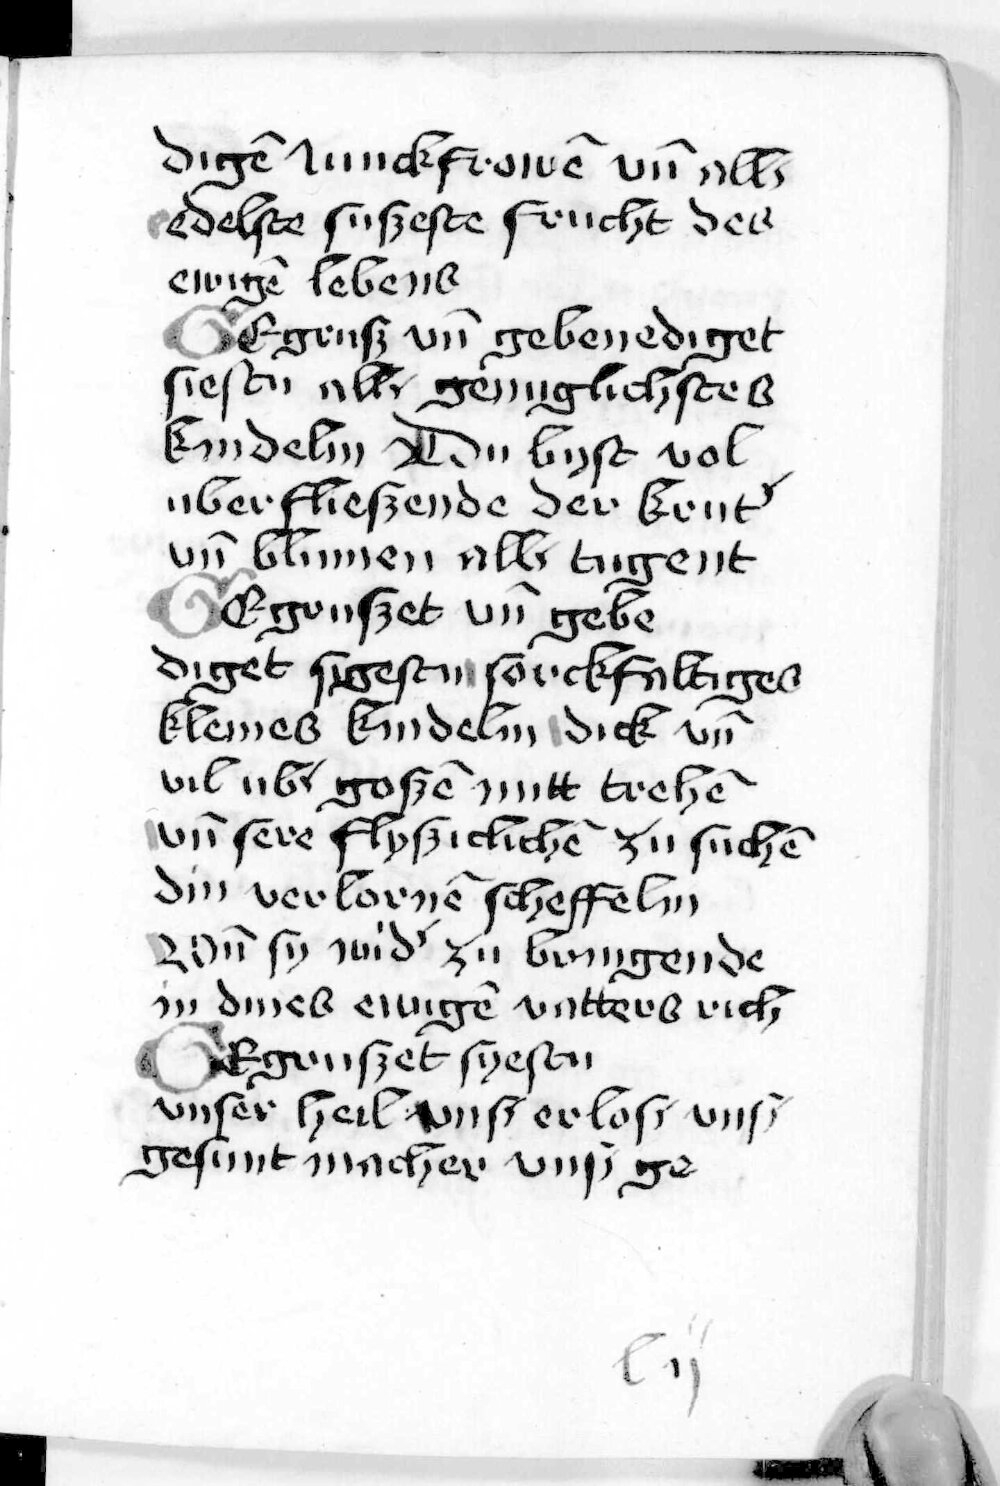 digē Iunckfrowē vn̄ all'
edelste suszeste frucht des
ewigē lebens
GEgrusz vn̄ gebenediget
siestu all' genuglichstes
kindelin Du byst vol
uberflieszende der krut'
vn̄ blumen all' tugent
GEgruszet vn̄ gebē
diget sigestu sorckfaltiges
kleines kindelin dick vn̄
vil ub' goszē mitt trehē
vn̄ sere flysziclichē zu suchē
din verlornē scheffelin
Vn̄ sy wid' zu bringende
in dines ewigē vatters rich
GEgruszet syestu
vnser heil vns' erlos' vns'
gesunt macher vns' ge
l ij